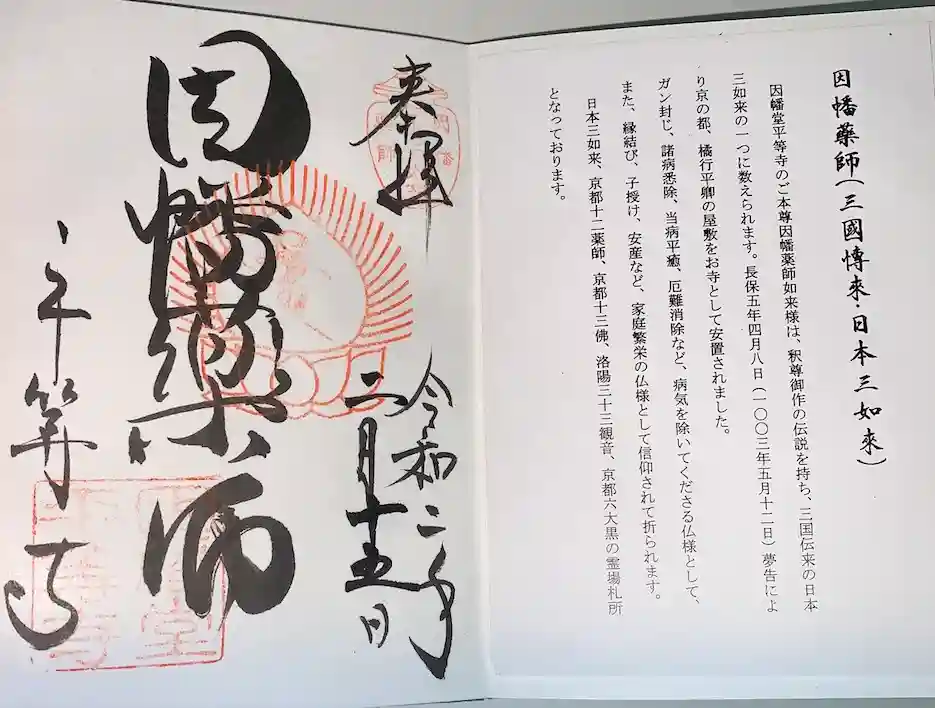 因幡藥師(三國傳来・日本三如來)
因幡堂平等寺のご本尊因幡薬師如来様は、釈尊御作の伝説を持ち、三国伝来の日本
三如来の一つに数えられます。長保五年四月八日(一〇〇三年五月十二日)夢告によ
り京の都、橘行平卿の屋敷をお寺として安置されました。
ガン封じ、諸病悉除、当病平癒、厄難消除など、病気を除いてくださる仏様として、
また、縁結び、子授け、安産など、家庭繁栄の仏様として信仰されて折られます。
日本三如来、京都十二薬師、京都十三佛、洛陽三十三観音、京都六大黒の霊場札所
となっております。
奉拝
令和二年
二月十五日
因幡薬師
平等寺